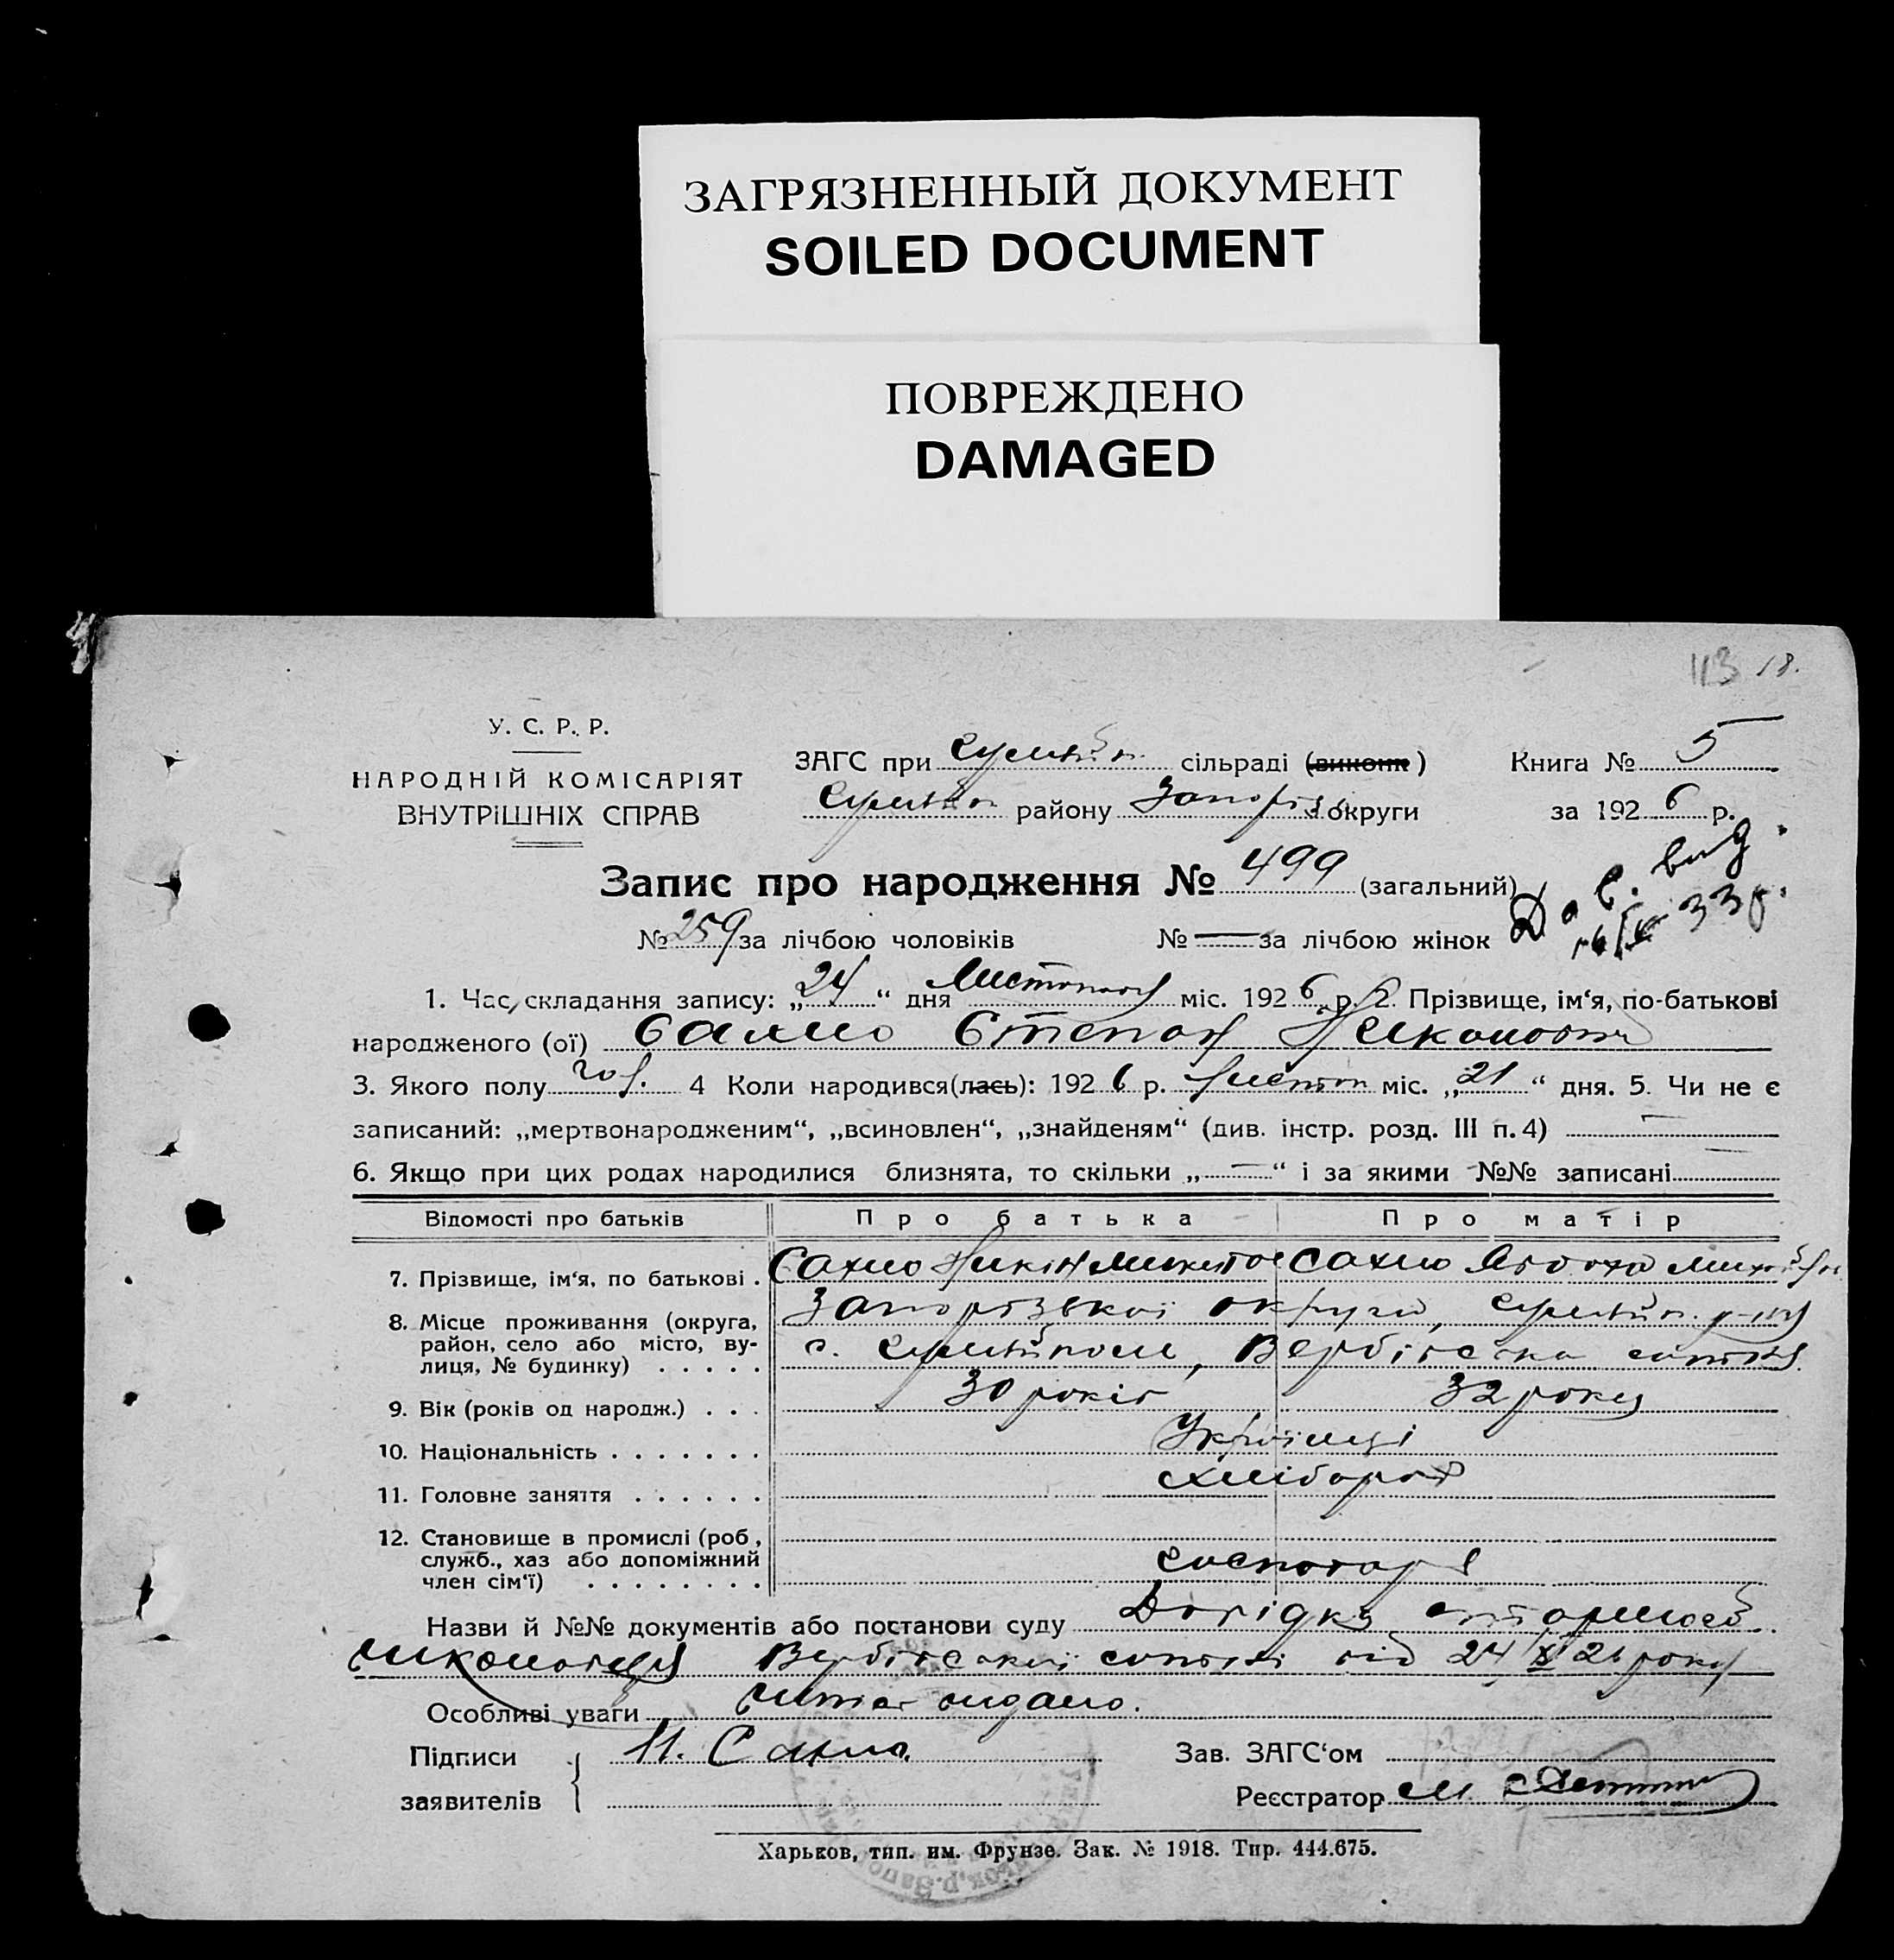 ЗАГРЯЗНЕННЫЙ ДОКУМЕНТ
SOILED DOCUMENT
ПОВРЕЖДЕНО
DAMAGED
113 18.
У. С. Р. Р.
НАРОДНІЙ КОМІСАРІЯТ
ВНУТРІШНІХ СПРАВ
ЗАГС при Гуляйп. сільраді (виконк)
Гуляйпол району Запоріз округи
Книга № 5
за 1926 р.
Запис про народження № 499 (загальний)
№ 259 за лічбою чоловіків № — за лічбою жінок
33 р.
1. Час складання запису: „24“ дня Листопада міс. 1926 р. 2. Прізвище, ім‘я, по-батькові
народженого (ої) Сахно Степан Никонович
3. Якого полу чол. 4 Коли народився(лась): 1926 р. Листоп міс. „21“ дня. 5. Чи не є
записаний: „мертвонародженим“, „всиновлен“, „знайденям“ (див. інстр. розд. III п. 4) —
6. Якщо при цих родах народилися близнята, то скільки „—“ і за якими №№ записані
Відомості про батьків Про батька Про матір
7. Прізвище, ім‘я, по батькові . Сахно Никон Сахно
8. Місце проживання (округа, Запорізької округи, Гуляйп. р-ну
район, село або місто, ву- с. Гуляйполе, Вербівська сотня
лиця, № будинку) . . . . .
9. Вік (років од народж.) . . . 30 років 32 роки
10. Національність . . . . . . . Українці
11. Головне заняття . . . . . . Хлібороб
12. Становище в промислі (роб,
служб., хаз або допоміжний
член сім‘ї) . . . . . . . . господарі
Назви й №№ документів або постанови суду Довідка
Вербівської сотні від 24/XI 26 року
Особливі уваги Витяг видано.
Підписи Н. Сахно
заявителів
Зав. ЗАГС‘ом
Реєстратор М.
Харьков, тип. им. Фрунзе. Зак. № 1918. Тир. 444.675.